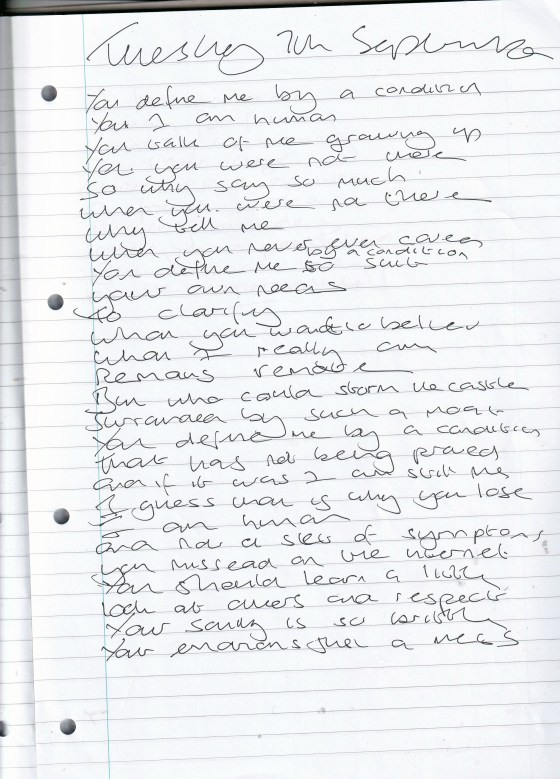 Tuesday 7th September
You define me by a condition
Yet I am human
You talk of me growing up
Yet you were not there
So why say so much
when you were not there
Why tell me
when you never even cared
by a condition
You define me to suit
your own needs
to clarify
what you want to believe
what I really am
Remains remote
But who could storm the castle
Surrounded by such a moat
You define me by a condition
that has not being proved
and if it was I am still me
I guess that is why you lose
I am human
and not a set of symptoms
you misread on the internet
You should learn a little
look at others and respect
Your sanity is so brittle
Your emotions just a mess